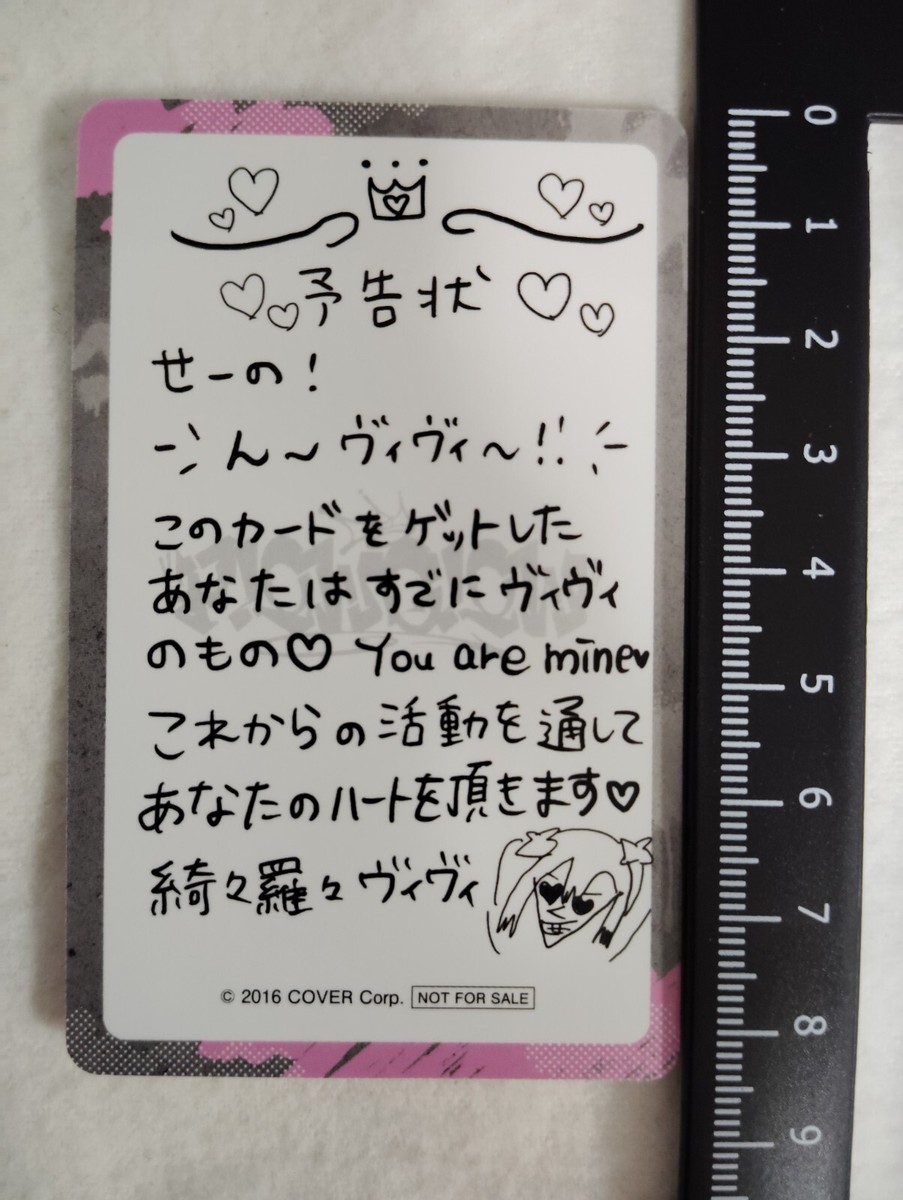 予告状
せーの!
ん〜ヴィヴィ〜!!
このカードをゲットした
あなたはすでにヴィヴィ
のもの♡ You are mine♥
これからの活動を通して
あなたのハートを頂きます♡
綺々羅々ヴィヴィ
© 2016 COVER Corp. NOT FOR SALE
0
1
2
3
4
5
6
7
8
9